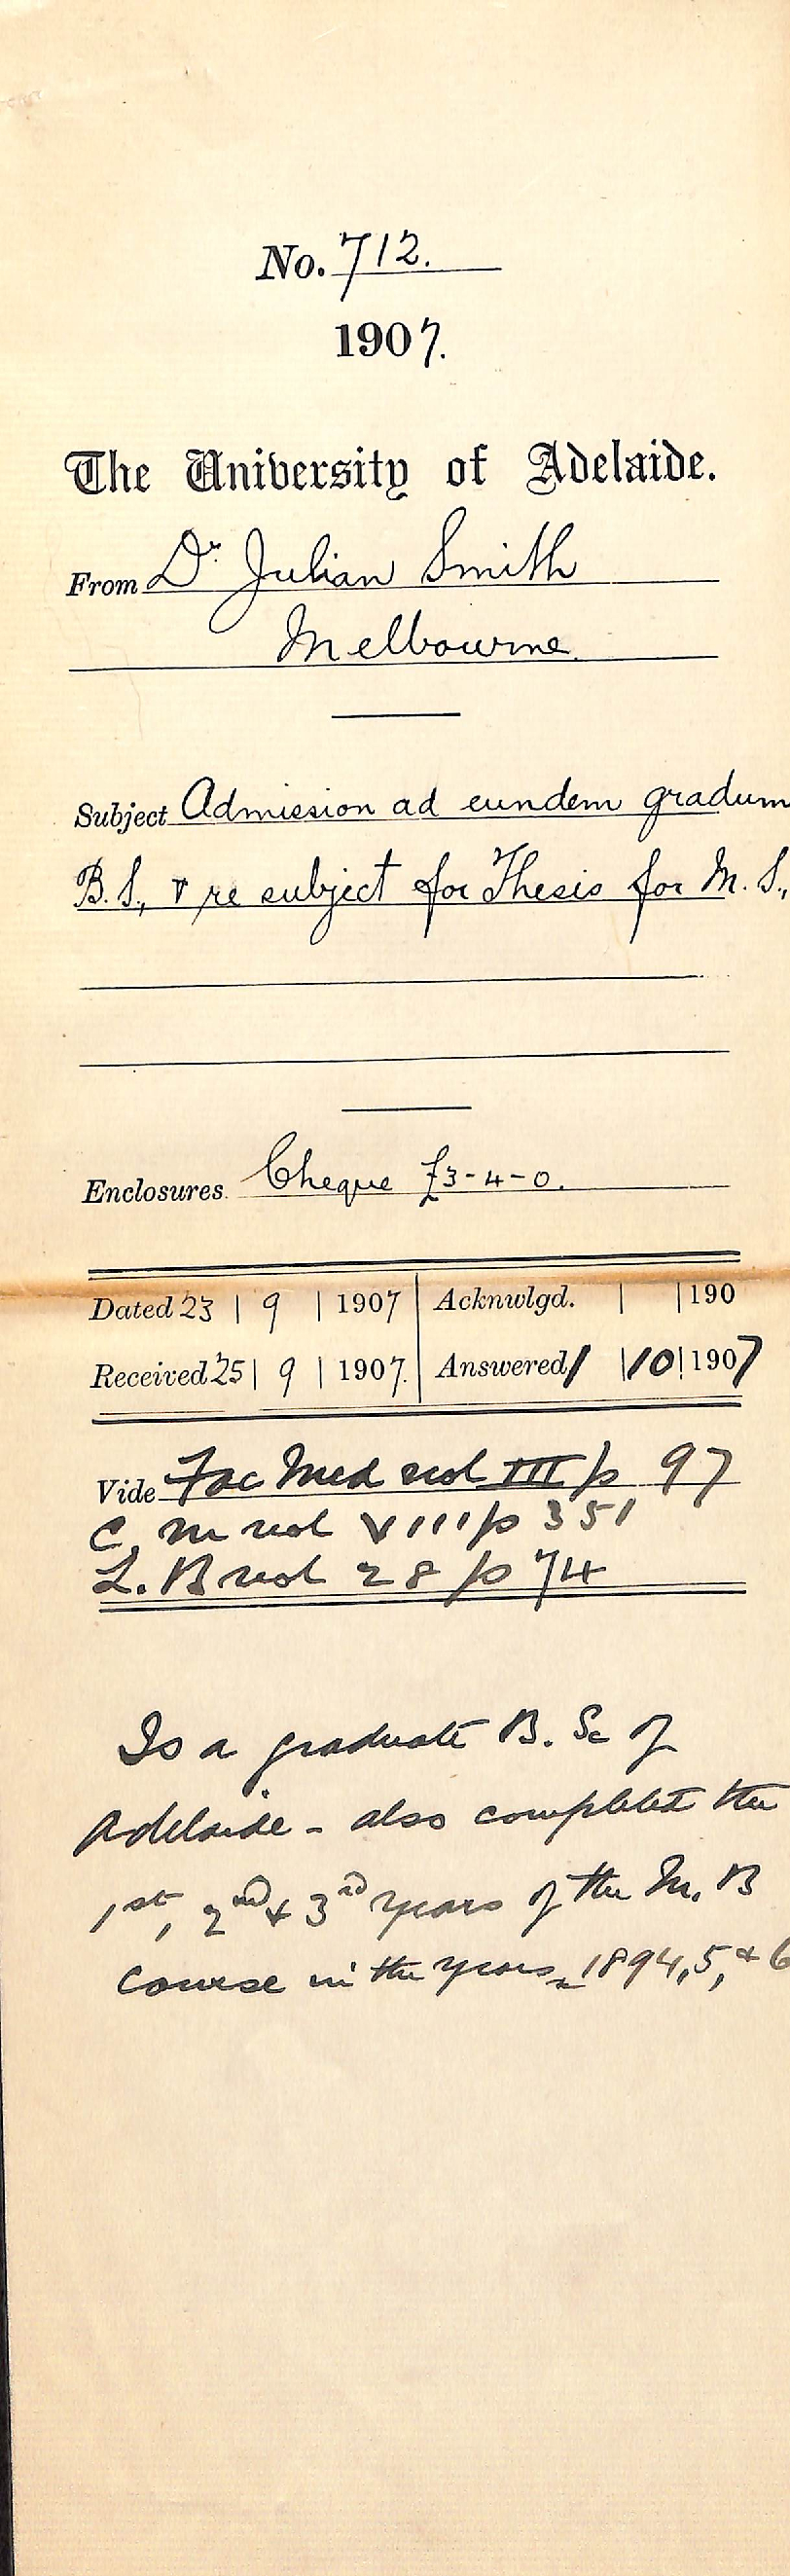 No. 712.
1907.
The University of Adelaide.
From Dr. Julian Smith
Melbourne.
Subject Admission ad eundem gradum
B.S., & re subject for Thesis for M.S.,
Enclosures. Cheque £3-4-0.
Dated 23 | 9 | 1907 | Acknwlgd. | | 190
Received 25 | 9 | 1907. | Answered 1 | 10 | 1907
Vide Fac Med vol III p 97
C. M vol VIII p 351
L. B vol 28 p 74
Is a graduate B. Sc of
Adelaide - also completed the
1st, 2nd & 3rd years of the M. B
course in the years 1894, 5, & 6